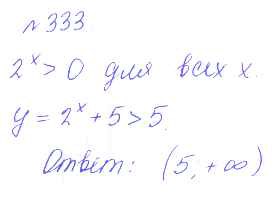 №333.
2^x > 0 для всех x.
y = 2^x + 5 > 5.
Ответ: (5, +∞)